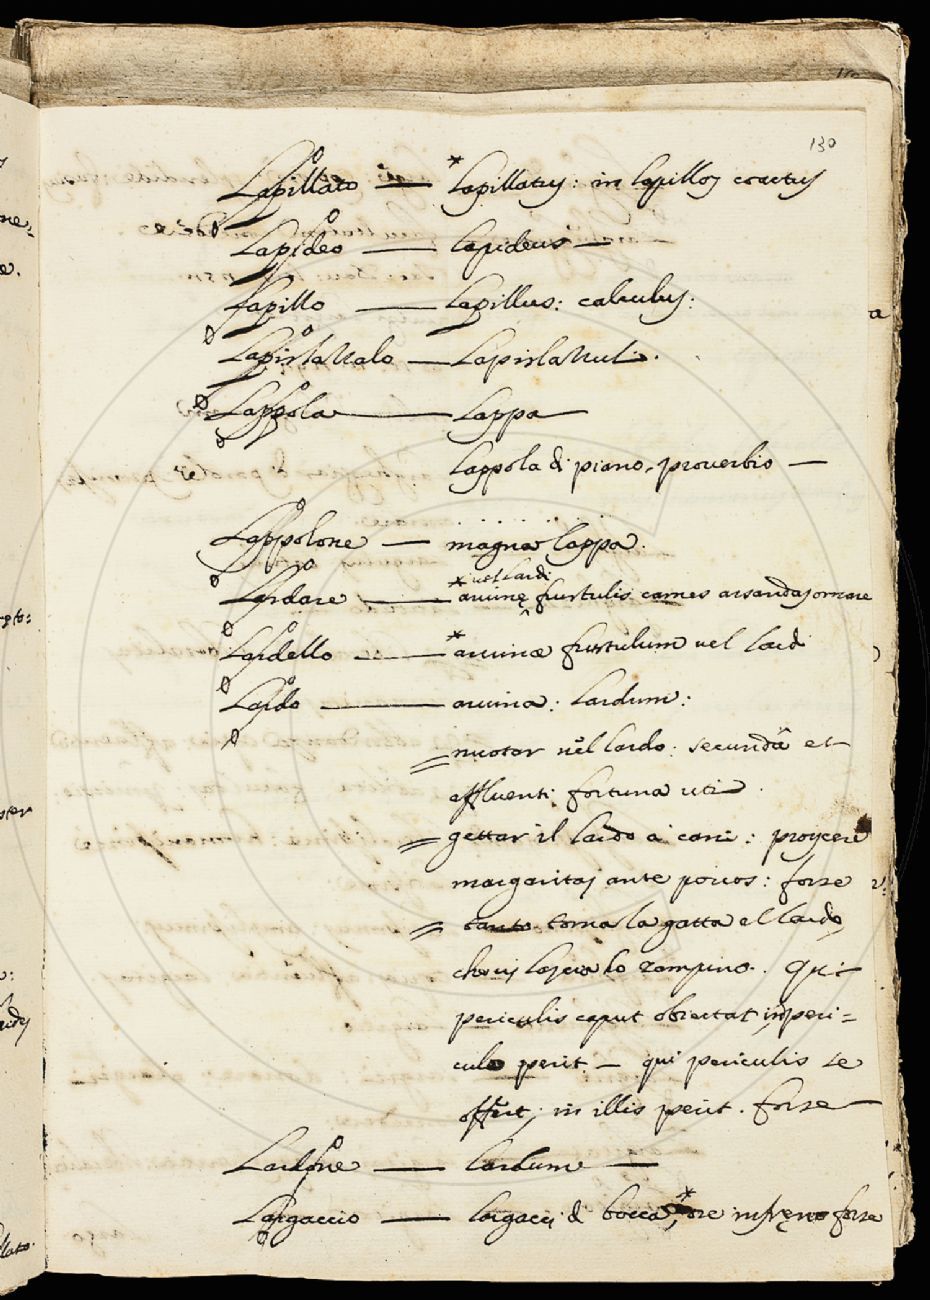 130
Lapillato — * lapillatus: in lapillos coactus
Lapideo — lapideus —
Lapillo — Lapillus: calculus:
Lapislazzalo — Lapislazzuli.
Lappola — Lappa —
Lappola di piano, proverbio —
Lappolone — magna lappa.
vel lardi
Lardare — * arvinę frustulis carnes assandas ornare
Lardello — * arvinæ frustulum vel lardi
Lardo — arvina: lardum:
= nuotar nel lardo: secundâ et
affluenti fortuna uti.
= gettar il lardo a cani: proijcere
margaritas ante porcos: forse
= tanto torna la gatta al lardo,
che vi lascia lo zampino. Qui
periculis caput obiectat, in peri=
culo perit — qui periculis se
offert, in illis perit. forse —
Lardone — lardum —
Largaccio — largacci di bocca, * ore infręno forse